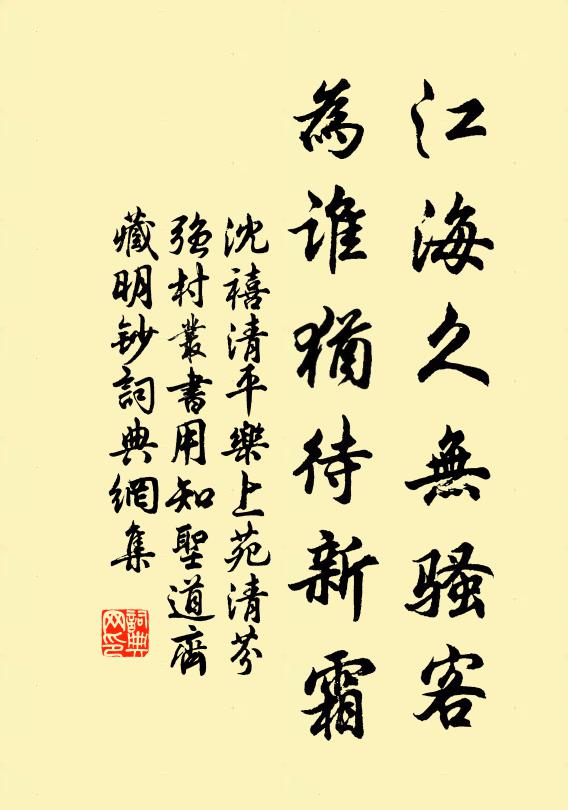 江海久無騷客
為誰猶待新霜
沈禧清平樂上苑清芬
强村叢書用知聖道齋
藏明鈔詞典網集
詞典網印